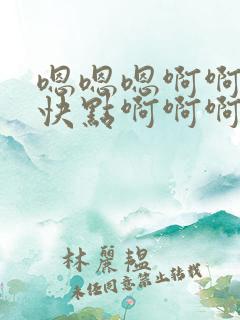 嗯嗯嗯啊啊
快點啊啊啊
林麗韞
未經同意禁止轉載